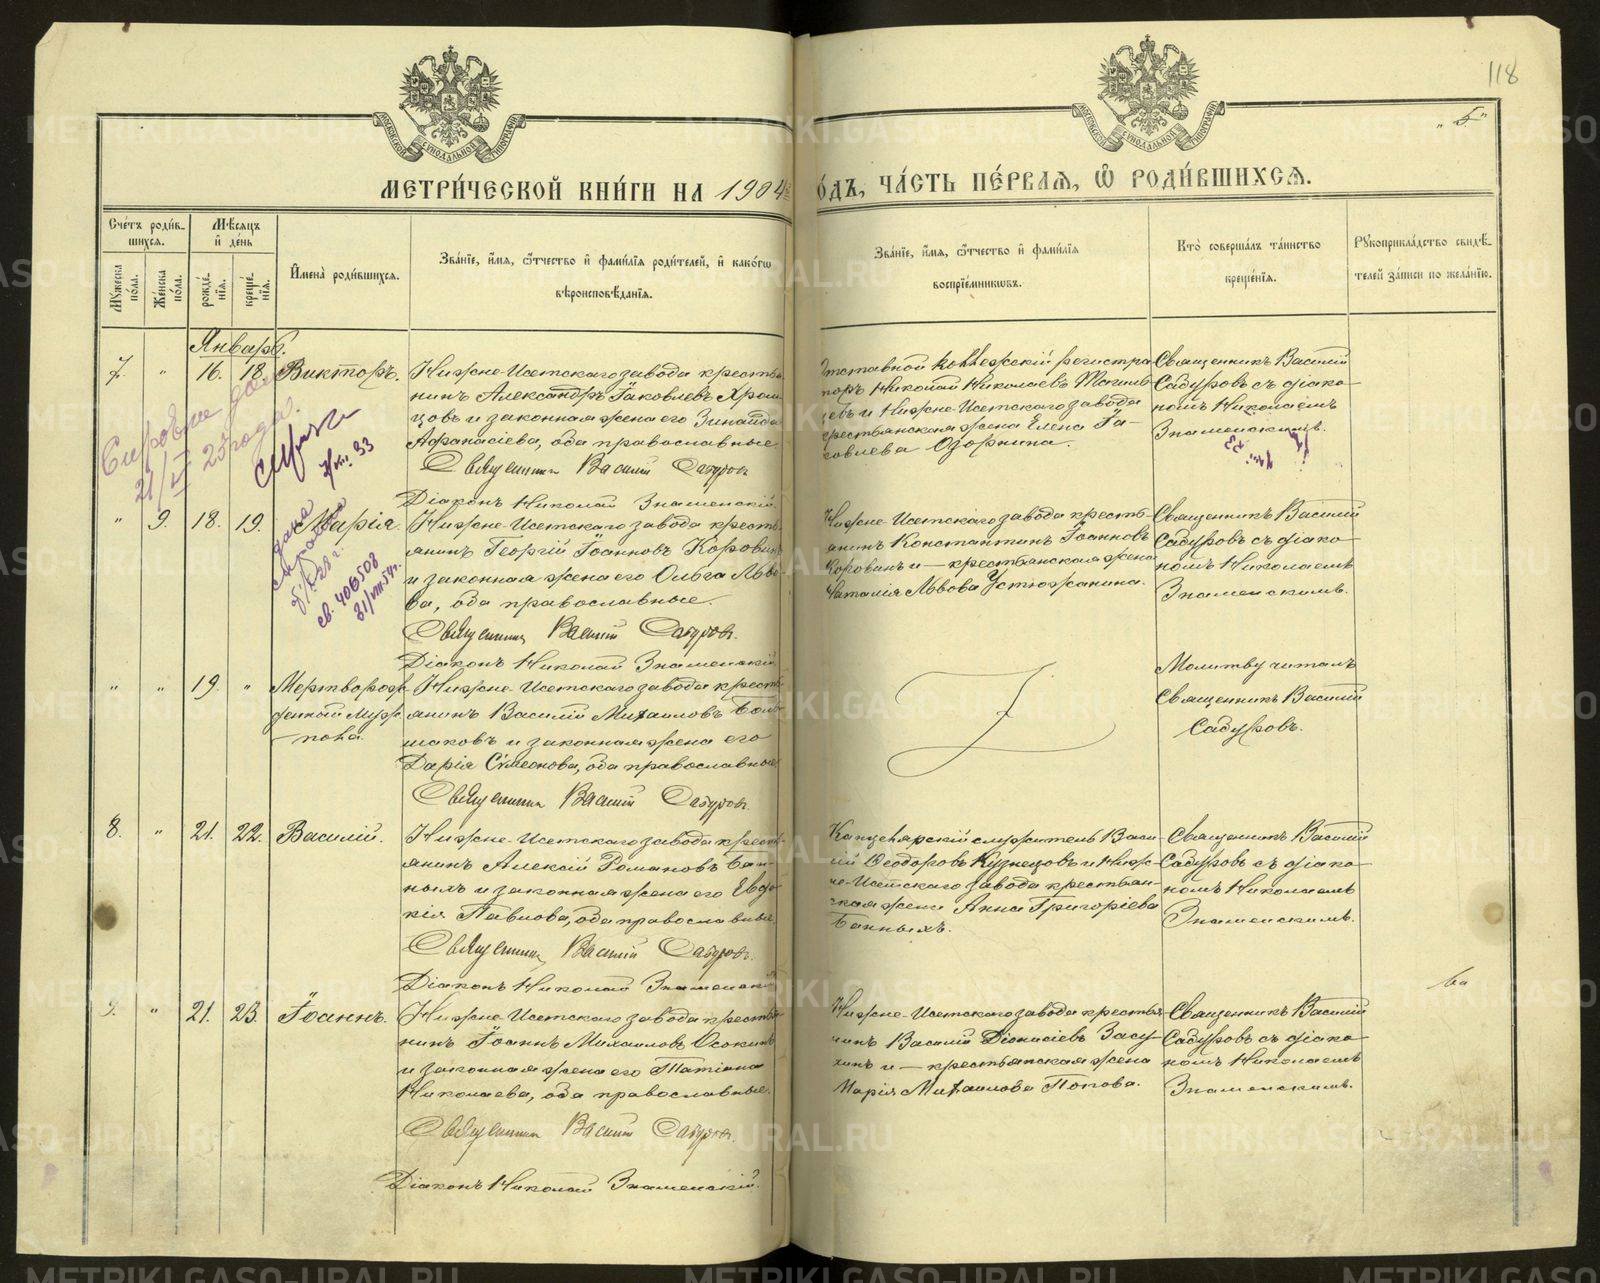 118
„5“
МОСКОВСКОЙ СУНОДАЛЬНОЙ ТИПОГРАФІИ
МОСКОВСКОЙ СУНОДАЛЬНОЙ ТИПОГРАФІИ
МЕТРИ́ЧЕСКОЙ КНИ́ГИ НА 1904
О́ДЪ, ЧА́СТЬ ПЕ́РВАЯ, Ѽ РОДИ́ВШИХСЯ.
Сче́тъ роди́в-
шихся.
Мѣ́сяцъ
и҆ де́нь
Му́жеска по́ла.
Же́нска по́ла.
рожде́нїя.
креще́нїя.
И҆мена̀ роди́вшихся.
Зва́нїе, и҆́мя, ѻ҆́тчество и҆ фами́лїя роди́телей, и҆ како́гѡ
вѣроисповѣ́данїя.
Зва́нїе, и҆́мя, ѻ҆́тчество и҆ фами́лїя
воспрїе́мникѡвъ.
Кто̀ соверша́лъ та́инство
креще́нїя.
Рꙋкоприкла́дство свидѣ́-
телей за́писи по жела́нїю.
Январь.
7. „ 16. 18. Викторъ.
Нижне-Исетскаго завода кресть-
янинъ Александръ Іаковлевъ Храм-
цовъ и законная жена его Зинаида
Афанасіева, оба православные
Священникъ Василій Садуровъ
Діаконъ Николай Знаменскій
Отставной коллежскій регистра-
торъ Николай Николаевъ
и Нижне-Исетскаго завода
крестьянская жена Елена Іа-
ковлева Озорнина.
Священникъ Василій
Садуровъ съ діако-
номъ Николаемъ
Знаменскимъ.
21/II 23 года
33
„ 9. 18. 19. Марія.
св. 406508
31/VIII 54г.
Нижне-Исетскаго завода кресть-
янинъ Георгій Іоанновъ Коровинъ
и законная жена его Ольга Льво-
ва, оба православные.
Священникъ Василій Садуровъ.
Діаконъ Николай Знаменскій
Нижне-Исетскаго завода кресть-
янинъ Константинъ Іоанновъ
Коровинъ и — крестьянская жена
Наталія Львова Устюжанина.
Священникъ Василій
Садуровъ съ діако-
номъ Николаемъ
Знаменскимъ.
„ „ 19. „ Мертворож-
денный муж.
пола.
Нижне-Исетскаго завода кресть-
янинъ Василій Михаиловъ Боль-
шаковъ и законная жена его
Дарія Симеонова, оба православные
Священникъ Василій Садуровъ
Молитву читалъ
Священникъ Василій
Садуровъ.
8. „ 21. 22. Василій.
Нижне-Исетскаго завода кресть-
янинъ Алексій Романовъ Бан-
ныхъ и законная жена его Евдо-
кія Павлова, оба православные
Священникъ Василій Садуровъ.
Діаконъ Николай Знаменскій
Канцелярскій служитель Васи-
лій Ѳеодоровъ Кузнецовъ и Ниж-
не-Исетскаго завода крестьян-
ская жена Анна Григоріева
Банныхъ.
Священникъ Василій
Садуровъ съ діако-
номъ Николаемъ
Знаменскимъ.
9. „ 21. 23. Іоаннъ.
Нижне-Исетскаго завода кресть-
янинъ Іоаннъ Михаиловъ Осокинъ
и законная жена его Татіана
Николаева, оба православные.
Священникъ Василій Садуровъ.
Діаконъ Николай Знаменскій.
Нижне-Исетскаго завода кресть-
янинъ Василій Діонисіевъ Засу-
хинъ и — крестьянская жена
Марія Михаилова Попова.
Священникъ Василій
Садуровъ съ діако-
номъ Николаемъ
Знаменскимъ.
METRIKI.GASO-URAL.RU